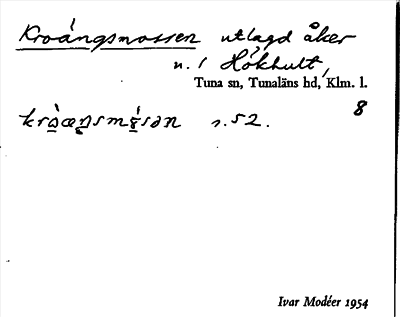 Kroängsmossen utlagd åker
n. / Hökhult,
Tuna sn, Tunaläns hd, Klm. l.
8
s. 52.
Ivar Modéer 1954